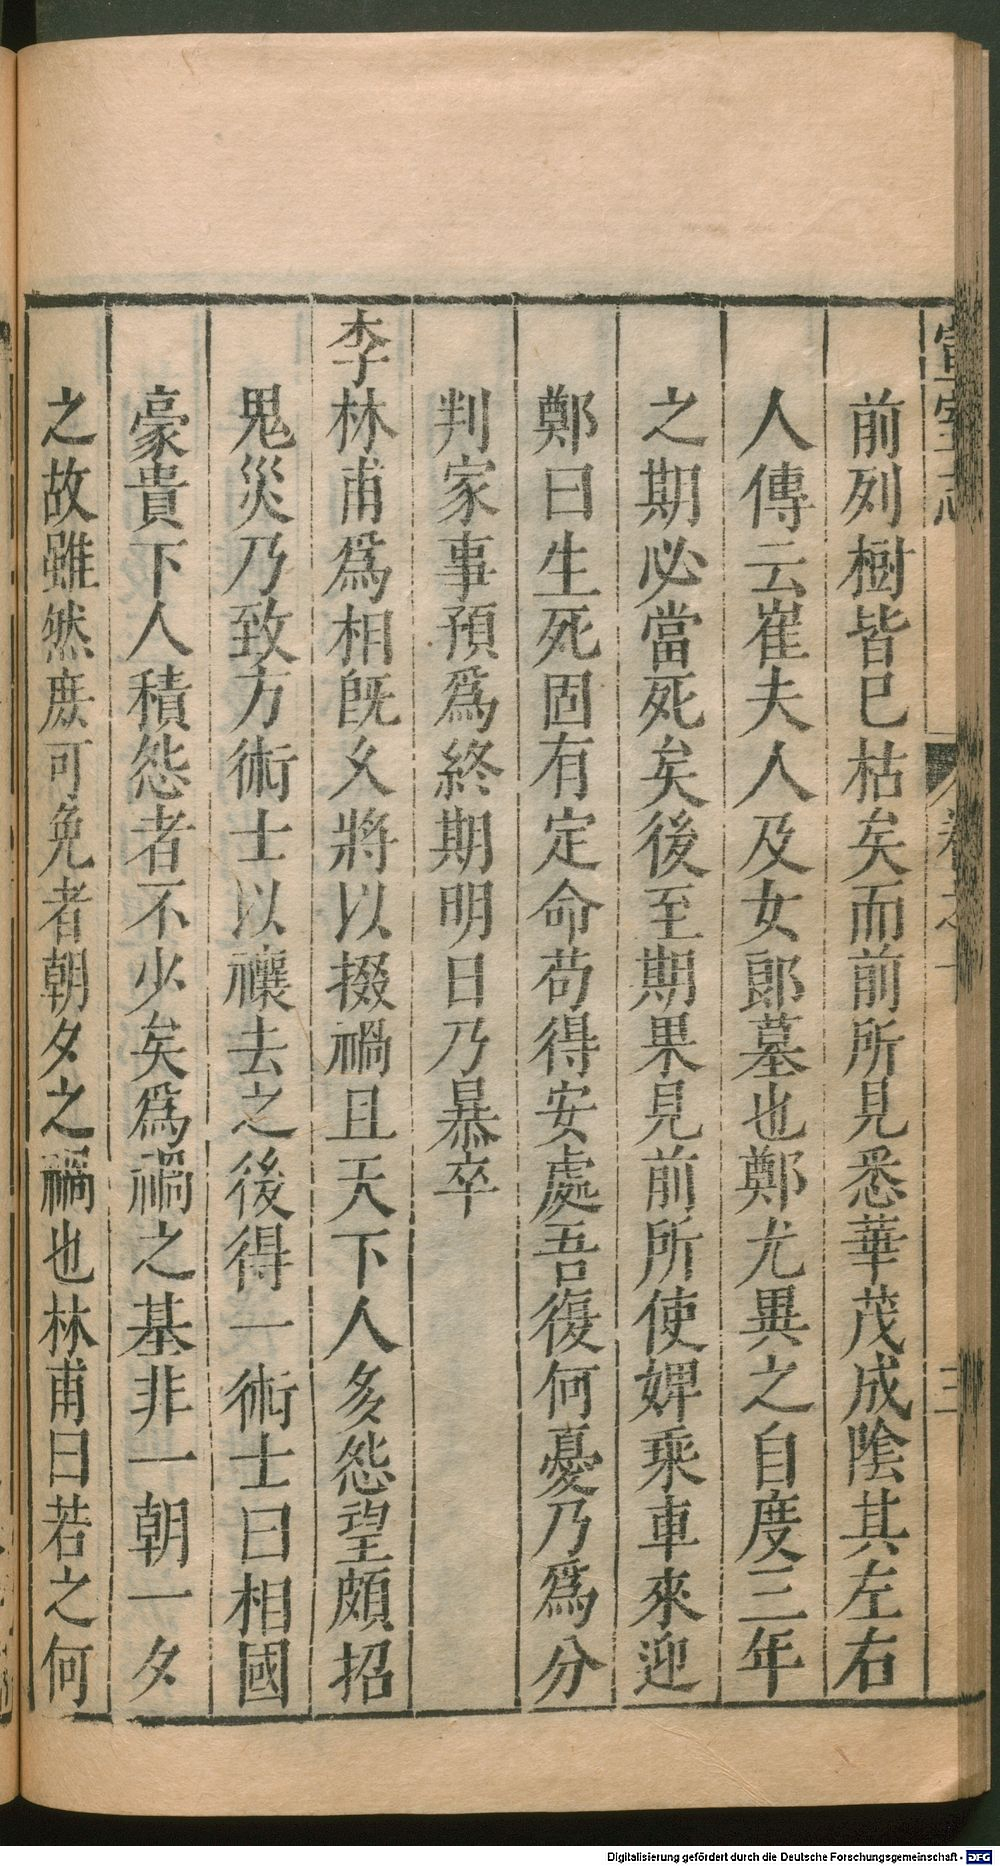 宣室志 卷之十 三
前列樹皆已枯矣而前所見悉華茂成陰其左右
人傳云崔夫人及女郎墓也鄭尤異之自度三年
之期必當死矣後至期果見前所使婢乘車來迎
鄭曰生死固有定命苟得安處吾復何憂乃爲分
判家事預爲終期明日乃暴卒
李林甫爲相旣久將以掇禍且天下人多怨望頗招
鬼災乃致方術士以禳去之後得一術士曰相國
豪貴下人積怨者不少矣爲禍之基非一朝一夕
之故雖然庻可免者朝夕之禍也林甫曰若之何
Digitalisierung gefördert durch die Deutsche Forschungsgemeinschaft - DFG